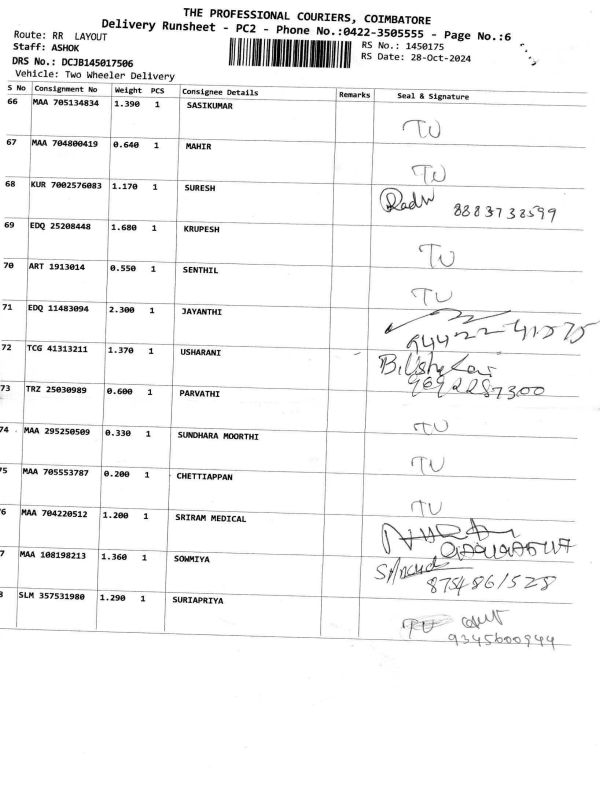 THE PROFESSIONAL COURIERS, COIMBATORE
Delivery Runsheet - PC2 - Phone No.:0422-3505555 - Page No.:6
Route: RR LAYOUT
RS No.: 1450175
Staff: ASHOK
RS Date: 28-Oct-2024
DRS No.: DCJB145017506
Vehicle: Two Wheeler Delivery
S No Consignment No Weight PCS Consignee Details Remarks Seal & Signature
66 MAA 705134834 1.390 1 SASIKUMAR TU
67 MAA 704800419 0.640 1 MAHIR TU
68 KUR 7002576083 1.170 1 SURESH 8883738599
69 EDQ 25208448 1.680 1 KRUPESH TU
70 ART 1913014 0.550 1 SENTHIL TU
71 EDQ 11483094 2.300 1 JAYANTHI 94422 41575
72 TCG 41313211 1.370 1 USHARANI
73 TRZ 25030989 0.600 1 PARVATHI TU
74 MAA 295250509 0.330 1 SUNDHARA MOORTHI TU
75 MAA 705553787 0.200 1 CHETTIAPPAN TU
6 MAA 704220512 1.200 1 SRIRAM MEDICAL
7 MAA 108198213 1.360 1 SOWMIYA 8754861528
8 SLM 357531980 1.290 1 SURIAPRIYA TU
9345600944